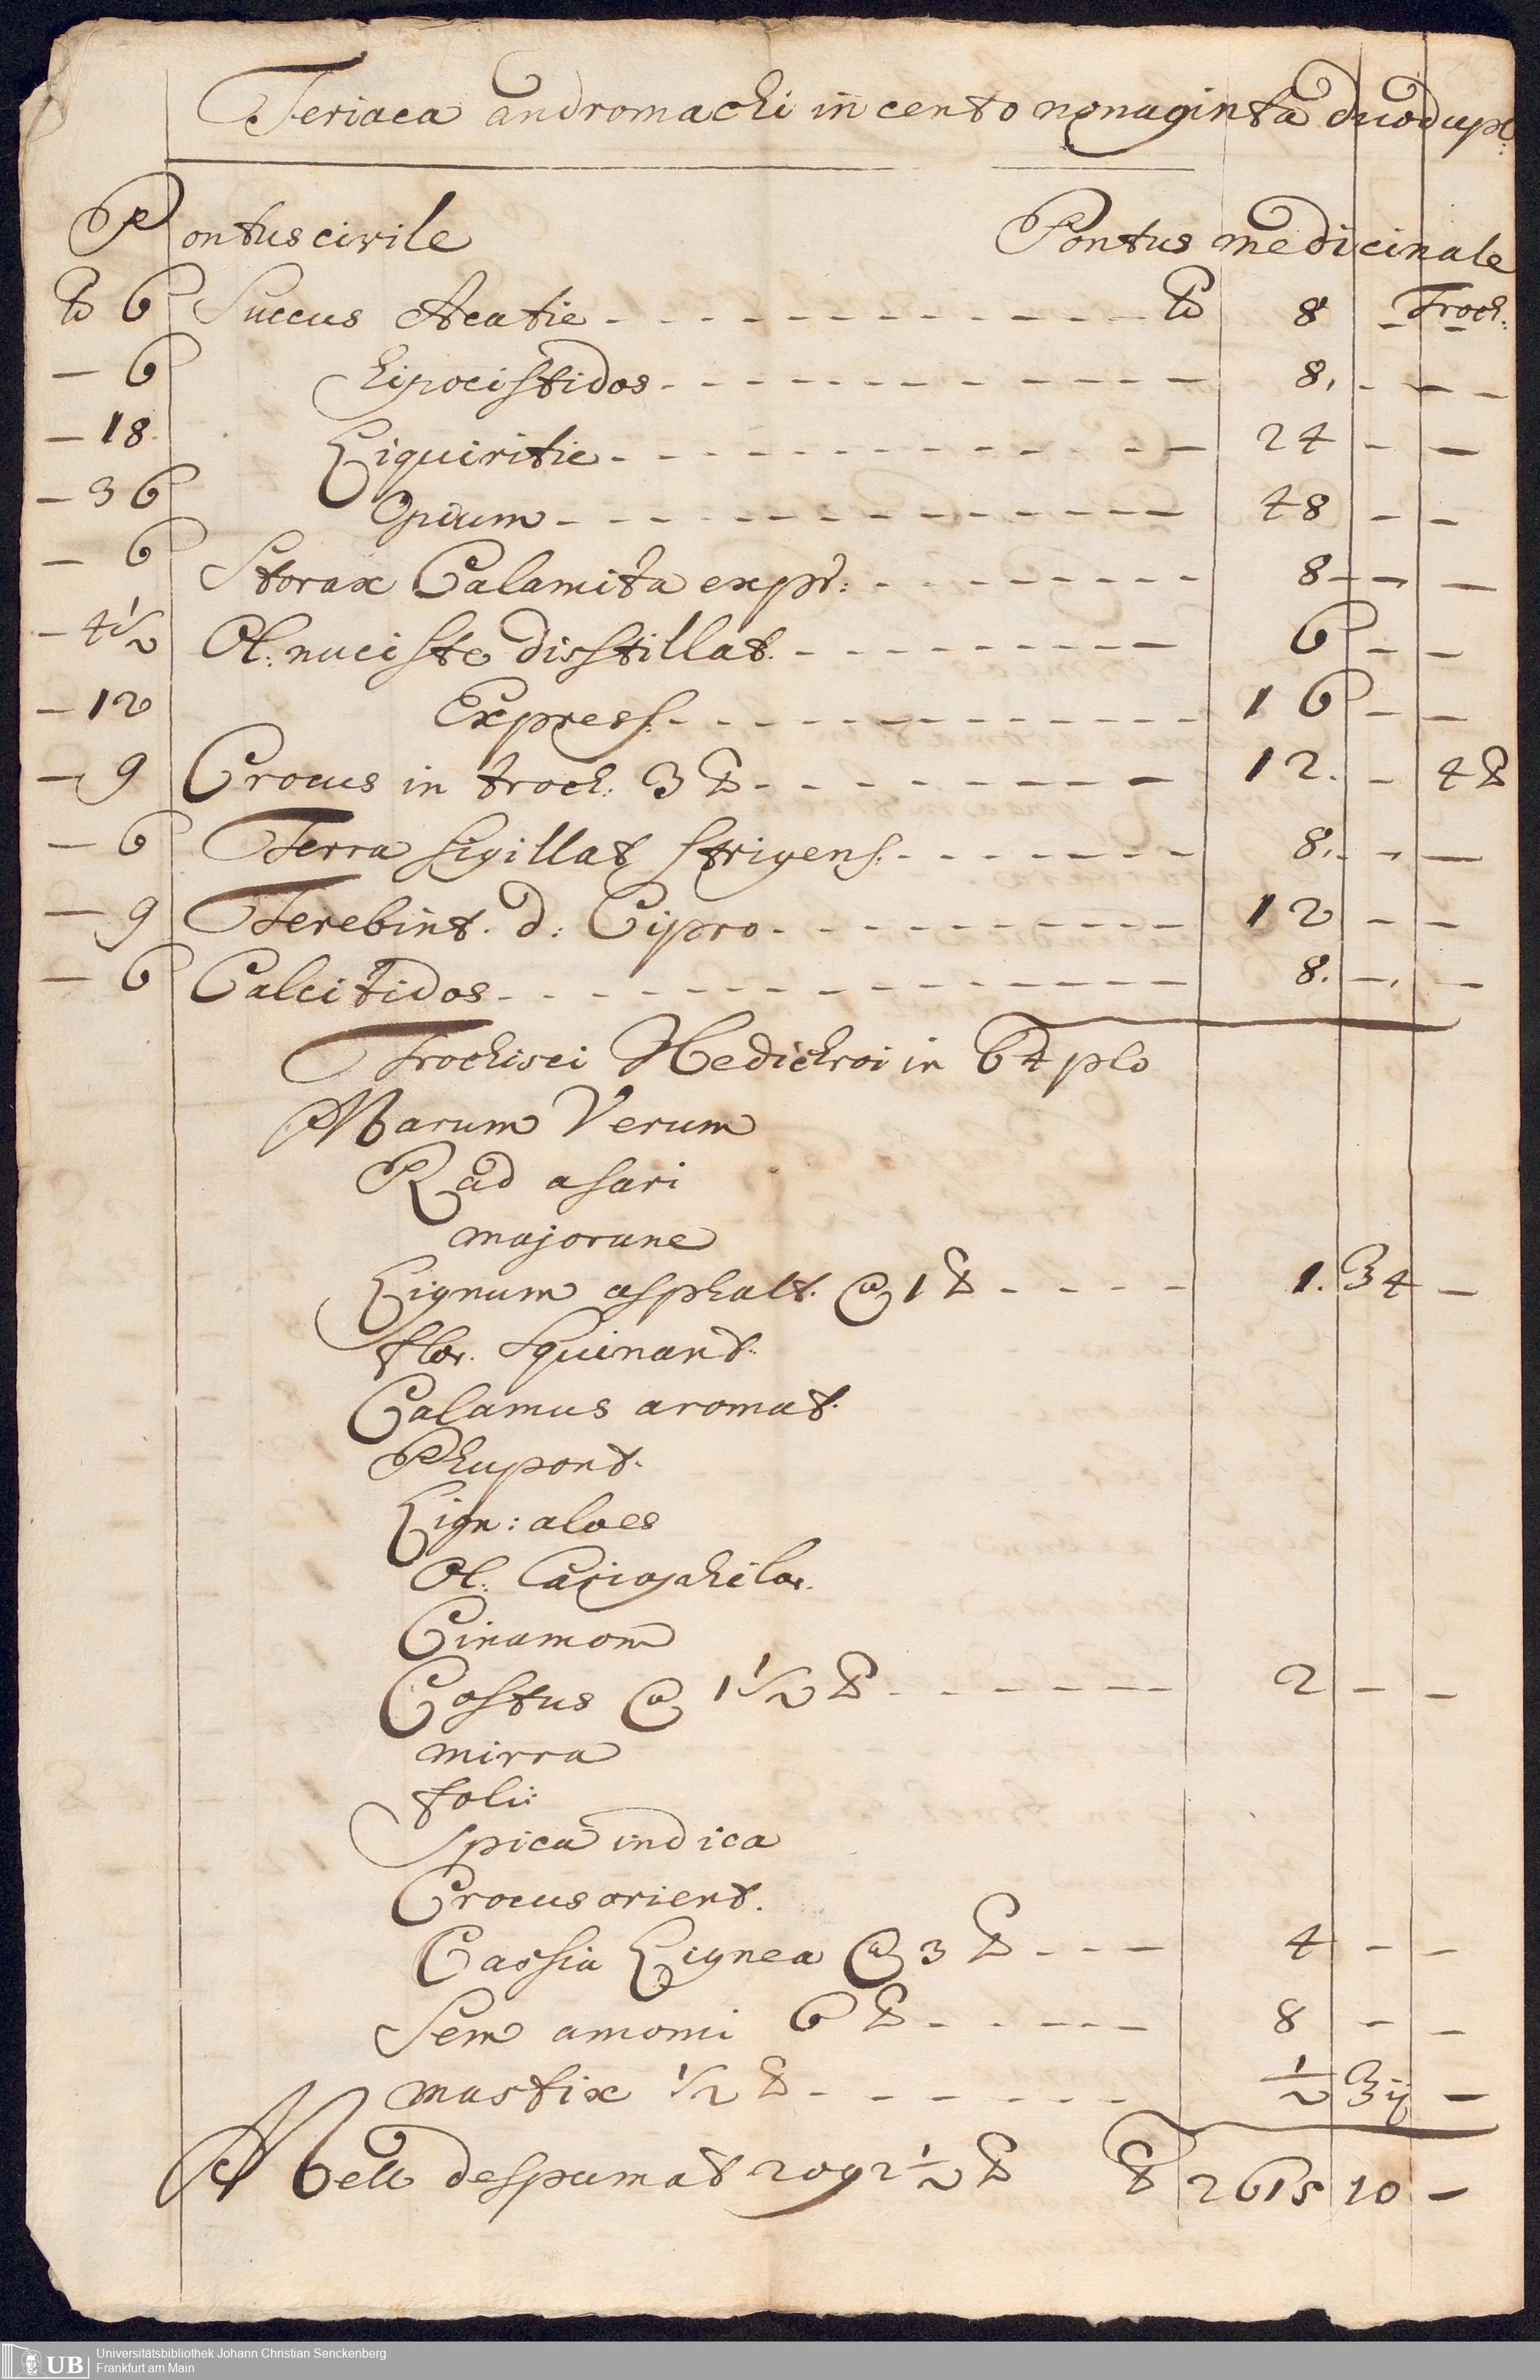 Teriaca andromachi in cento nonaginta duodupl:
Pontus civile Pontus medicinale
℔ 6 Succus Acatie - - - ℔ 8 - Troch:
— 6 hipocistidos - - - 8. - — —
— 18. Liquiritie - - - 24 - —
— 36 Opium - - - 48 - —
— 6 Storax Calamita expr: - - - 8 - — —
— 4 1/2 Ol: nuciste disstillat. - - - 6 - —
— 12 Express. - - - 16 - —
— 9 Crocus in troch. 3 ℔ - - - 12. - 4 ℔
— 6 Terra sigillat strigens. - - - 8. - —
— 9 Terebint. d: Cipro - - - 12 - —
— 6 Calcitidos - - - 8. - —
Trochisci Hedichroi in 64 plo
Marum Verum
Rad asari
majorane
Lignum asphalt. @ 1 ℔ - - - 1. ℥ 4 —
flor. Squinant.
Calamus aromat.
Phupont.
Lign: aloes
Ol. Cariophilor.
Cinamom
Costus @ 1 1/2 ℔ - - - 2 - —
mirra
folii
Spica indica
Crocus orient.
Cassia Lignea @ 3 ℔ - - - 4 - —
Sem amomi 6 ℔ - - - 8 - —
mastix 1/2 ℔ - - - 1/2 ℥ ij —
Mell despumat 2092 1/2 ℔ ℔ 2615 10 —
Universitätsbibliothek Johann Christian Senckenberg
Frankfurt am Main
UB